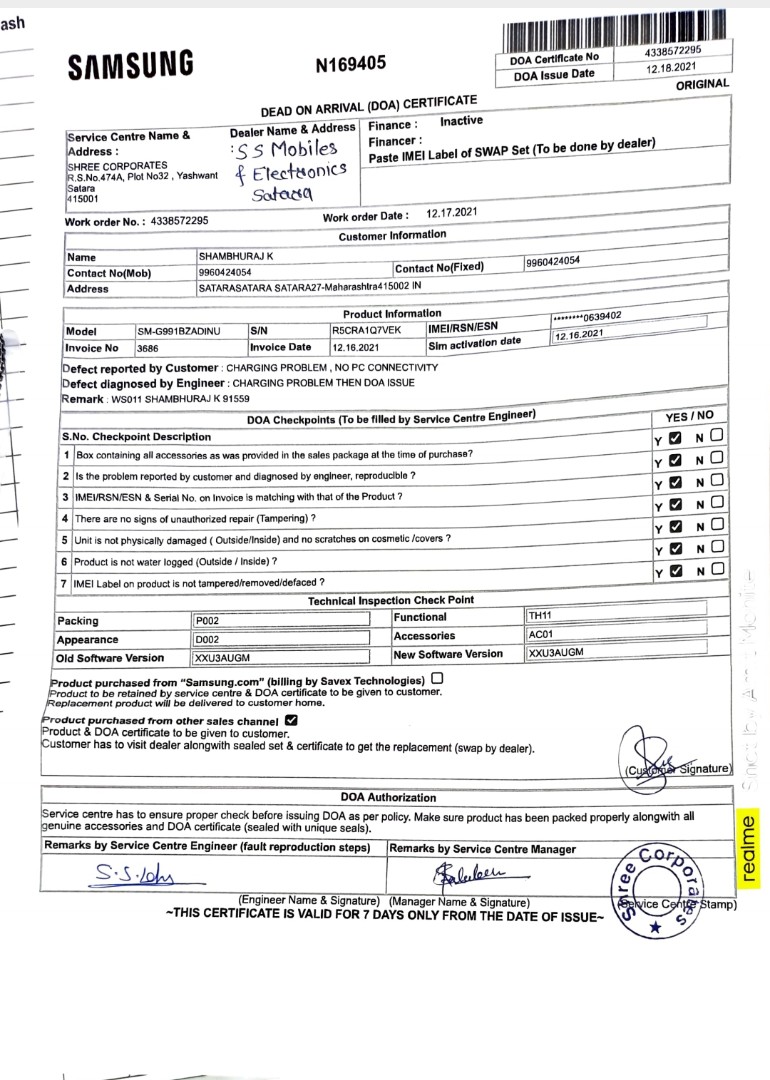 ash
SAMSUNG
N169405
DOA Certificate No 4338572295
DOA Issue Date 12.18.2021
ORIGINAL
DEAD ON ARRIVAL (DOA) CERTIFICATE
Service Centre Name & Address :
SHREE CORPORATES
R.S.No.474A, Plot No32 , Yashwant
Satara
415001
Dealer Name & Address
:S S Mobiles
& Electronics
Satara
Finance : Inactive
Financer :
Paste IMEI Label of SWAP Set (To be done by dealer)
Work order No. : 4338572295 Work order Date : 12.17.2021
Customer Information
Name SHAMBHURAJ K
Contact No(Mob) 9960424054 Contact No(Fixed) 9960424054
Address SATARASATARA SATARA27-Maharashtra415002 IN
Product Information
Model SM-G991BZADINU S/N R5CRA1Q7VEK IMEI/RSN/ESN ********0639402
Invoice No 3686 Invoice Date 12.16.2021 Sim activation date 12.16.2021
Defect reported by Customer : CHARGING PROBLEM , NO PC CONNECTIVITY
Defect diagnosed by Engineer : CHARGING PROBLEM THEN DOA ISSUE
Remark : WS011 SHAMBHURAJ K 91559
DOA Checkpoints (To be filled by Service Centre Engineer) YES / NO
S.No. Checkpoint Description Y N
1 Box containing all accessories as was provided in the sales package at the time of purchase? Y N
2 Is the problem reported by customer and diagnosed by engineer, reproducible ? Y N
3 IMEI/RSN/ESN & Serial No. on Invoice is matching with that of the Product ? Y N
4 There are no signs of unauthorized repair (Tampering) ? Y N
5 Unit is not physically damaged ( Outside/Inside) and no scratches on cosmetic /covers ? Y N
6 Product is not water logged (Outside / Inside) ? Y N
7 IMEI Label on product is not tampered/removed/defaced ?
Technical Inspection Check Point
Packing P002 Functional TH11
Appearance D002 Accessories AC01
Old Software Version XXU3AUGM New Software Version XXU3AUGM
Product purchased from "Samsung.com" (billing by Savex Technologies)
Product to be retained by service centre & DOA certificate to be given to customer.
Replacement product will be delivered to customer home.
Product purchased from other sales channel
Product & DOA certificate to be given to customer.
Customer has to visit dealer alongwith sealed set & certificate to get the replacement (swap by dealer).
(Customer Signature)
DOA Authorization
Service centre has to ensure proper check before issuing DOA as per policy. Make sure product has been packed properly alongwith all
genuine accessories and DOA certificate (sealed with unique seals).
Remarks by Service Centre Engineer (fault reproduction steps) Remarks by Service Centre Manager
(Engineer Name & Signature) (Manager Name & Signature) (Service Centre Stamp)
Shree Corporates
~THIS CERTIFICATE IS VALID FOR 7 DAYS ONLY FROM THE DATE OF ISSUE~
realme